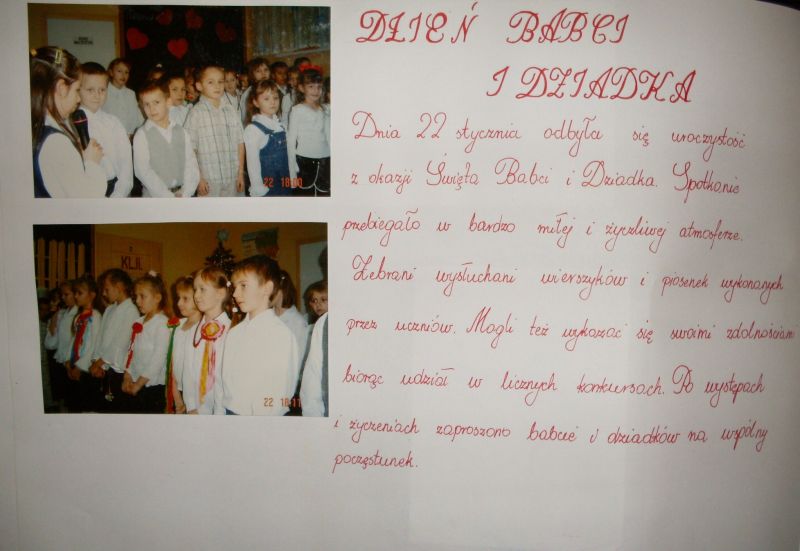 DZIEŃ BABCI
I DZIADKA
Dnia 22 stycznia odbyła się uroczystość
z okazji Święta Babci i Dziadka. Spotkanie
przebiegało w bardzo miłej i życzliwej atmosferze.
Zebrani wysłuchani wierszyków i piosenek wykonanych
przez uczniów. Mogli też wykazać się swoimi zdolnościami
biorąc udział w licznych konkursach. Po występach
i życzeniach zaproszono babcie i dziadków na wspólny
poczęstunek.
22 18:00
KL.II.
22 18:11